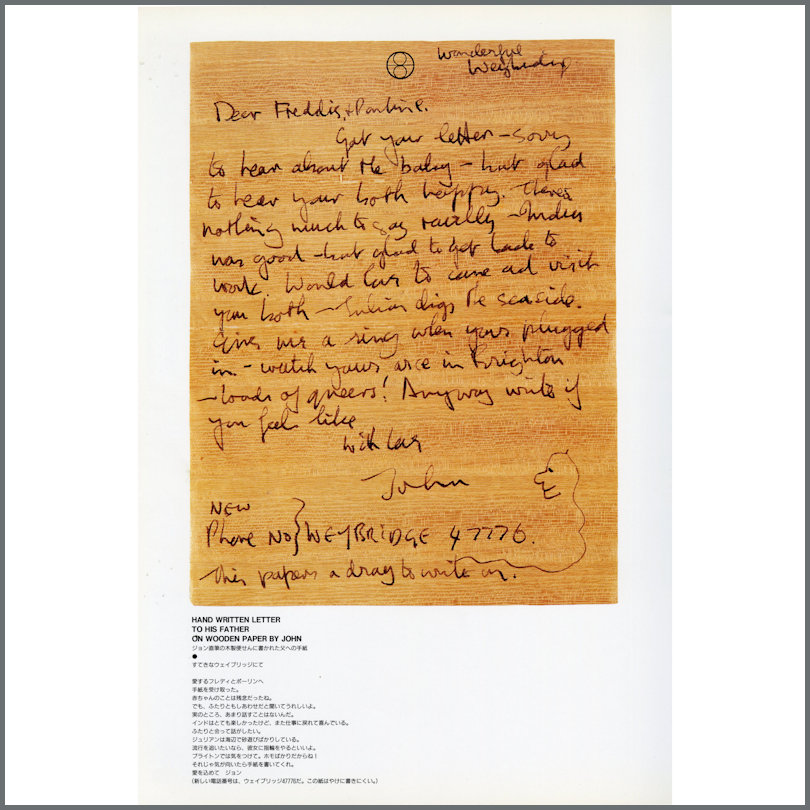 Wonderful
Weybridge
Dear Freddie, + Pauline.
Got your letter – sorry
to hear about the baby – but glad
to hear your both happy. Theres
nothing much to say really – India
was good – but glad to get back to
work. Would love to come and visit
you both – Julian digs the seaside.
Give me a ring when yours plugged
in. – watch yours arse in Brighton
– loads of queers! Anyway write if
you feel like
with love
John
NEW
Phone No } WEYBRIDGE 47776.
This papers a drag to write on.
HAND WRITTEN LETTER
TO HIS FATHER
ON WOODEN PAPER BY JOHN
ジョン直筆の木製便せんに書かれた父への手紙
●
すてきなウェイブリッジにて
愛するフレディとポーリンへ
手紙を受け取った。
赤ちゃんのことは残念だったね。
でも、ふたりともしあわせだと聞いてうれしいよ。
実のところ、あまり話すことはないんだ。
インドはとても楽しかったけど、また仕事に戻れて喜んでいる。
ふたりと会って話がしたい。
ジュリアンは海辺で砂遊びばかりしている。
流行を追いたいなら、彼女に指輪をやるといいよ。
ブライトンでは気をつけて。ホモばかりだからね!
それじゃ気が向いたら手紙を書いてくれ。
愛を込めて ジョン
(新しい電話番号は、ウェイブリッジ47776だ。この紙はやけに書きにくい。)